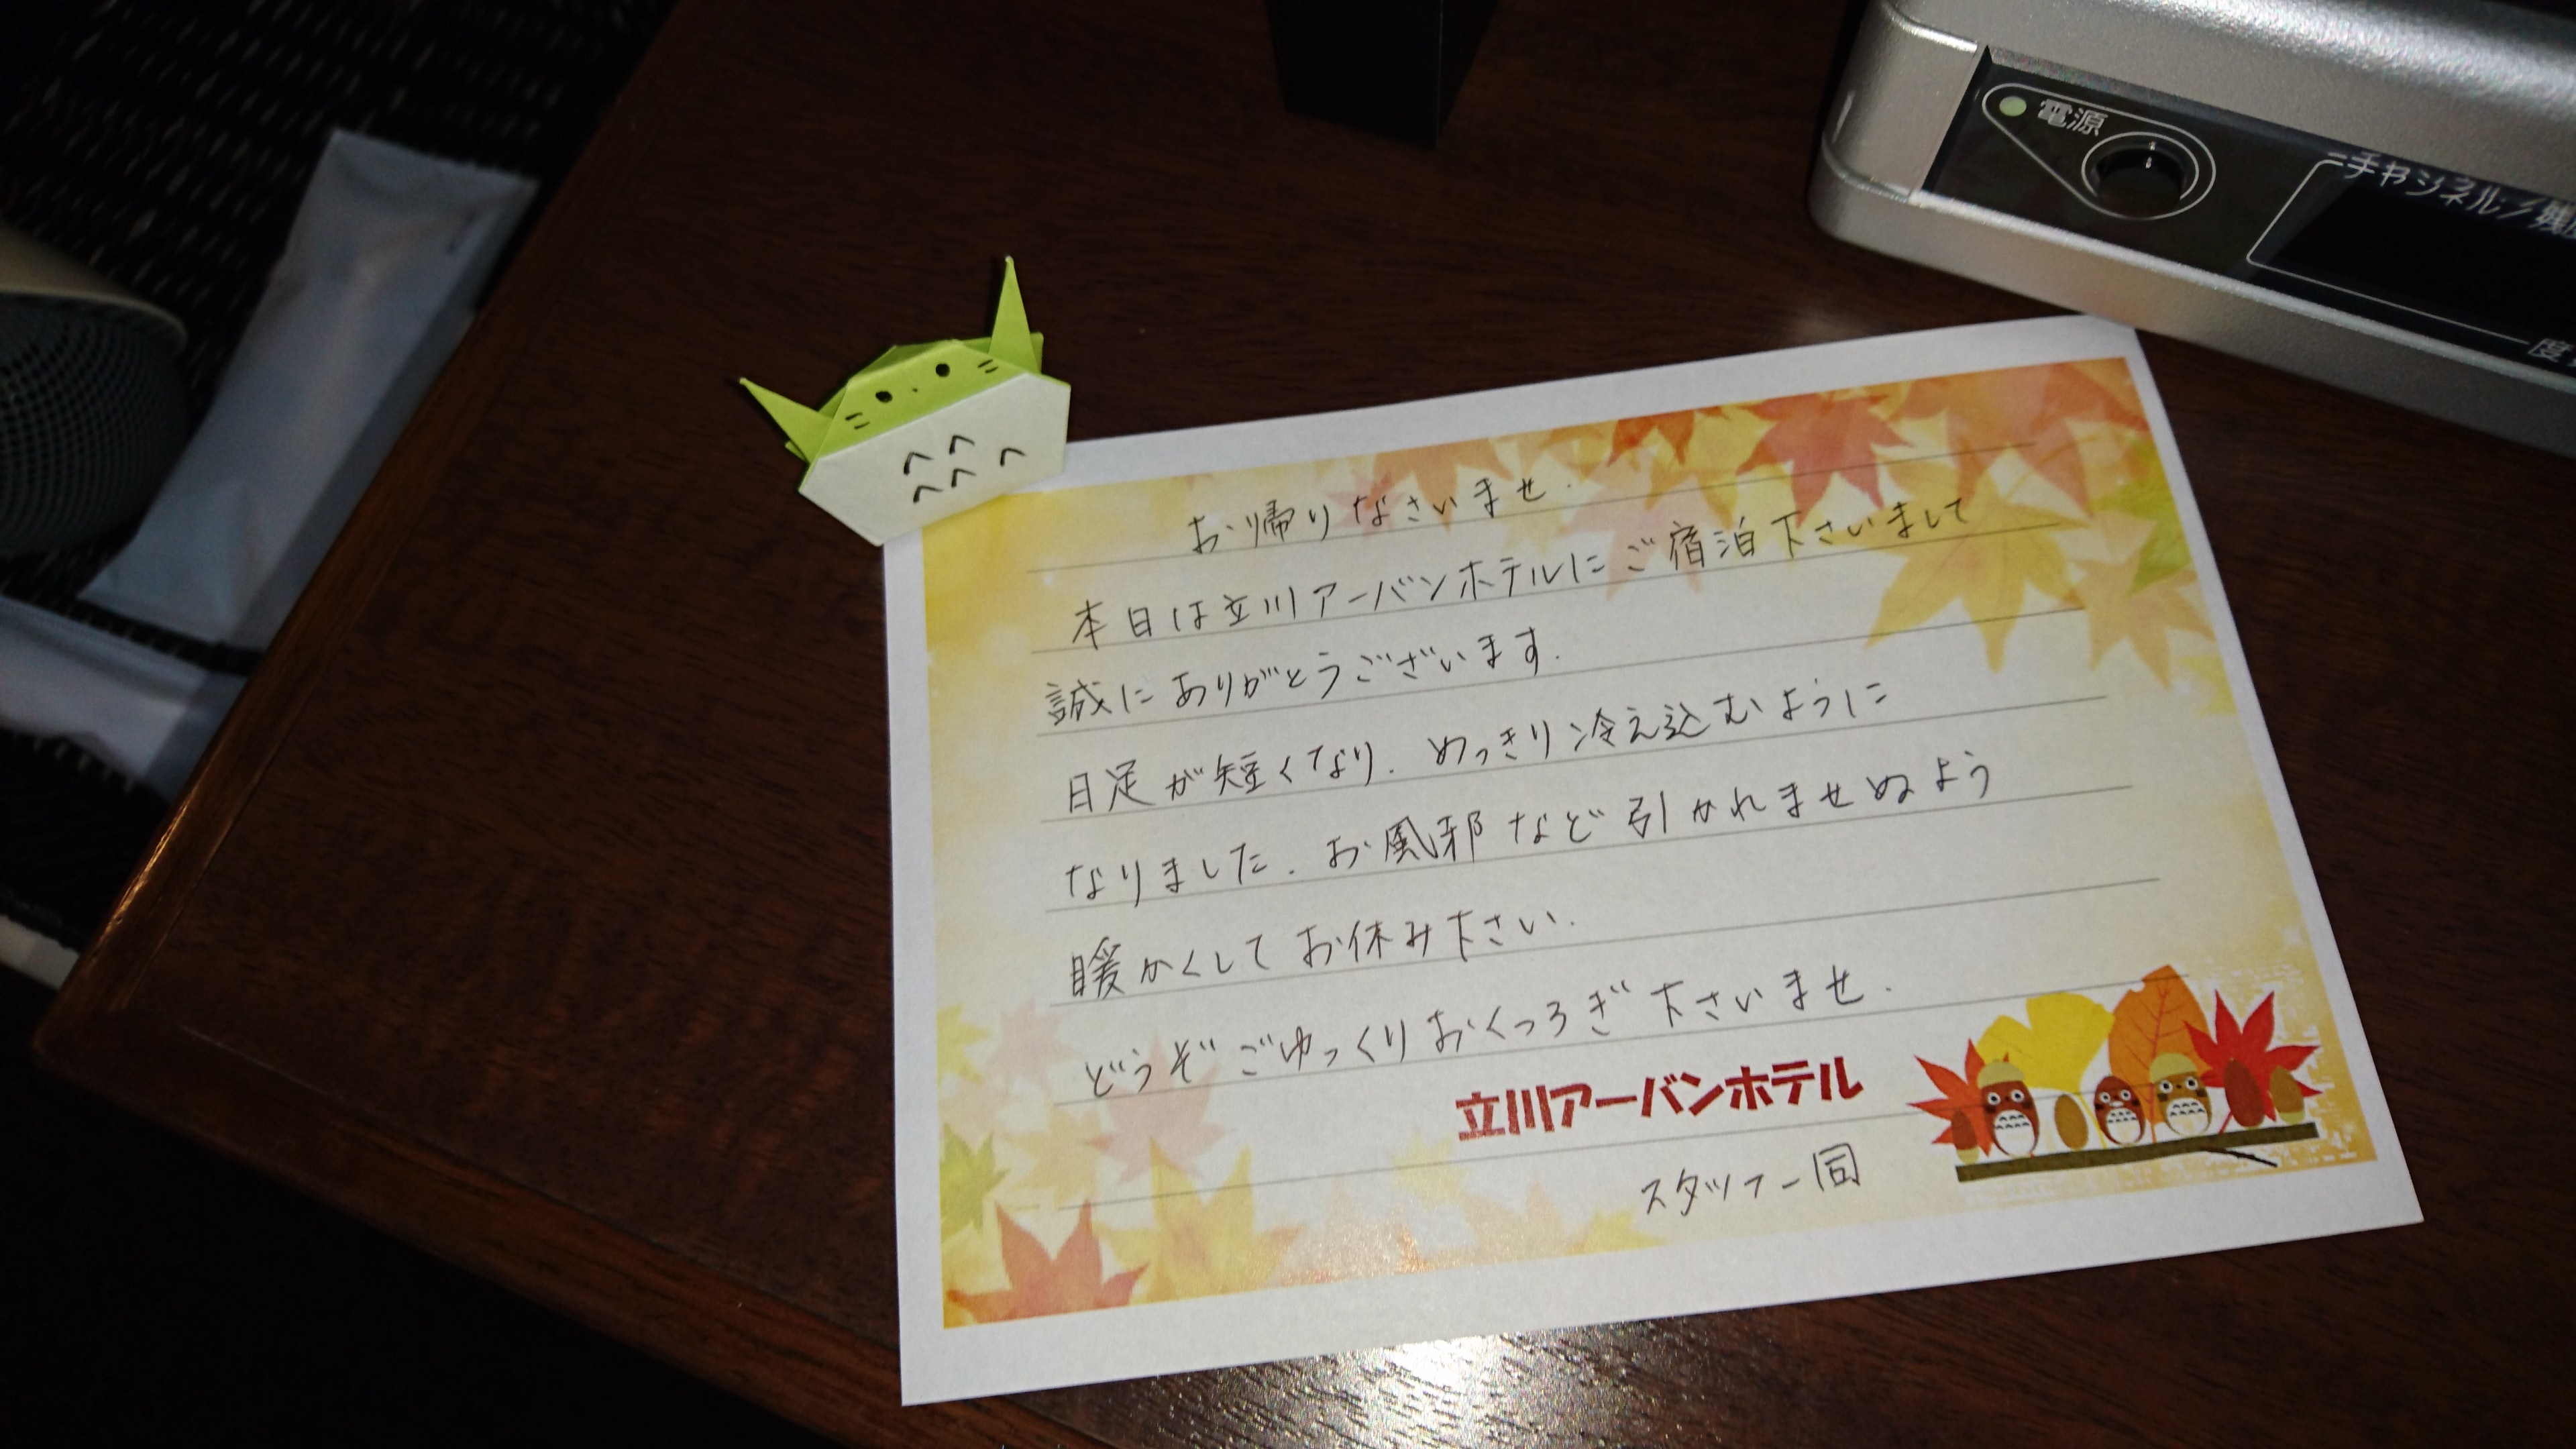 電源
チャンネル/残
度
お帰りなさいませ.
本日は立川アーバンホテルにご宿泊下さいまして
誠にありがとうございます.
日足が短くなり. めっきり冷え込むように
なりました. お風邪など引かれませぬよう
暖かくしてお休み下さい.
どうぞごゆっくりおくつろぎ下さいませ.
立川アーバンホテル
スタッフ一同